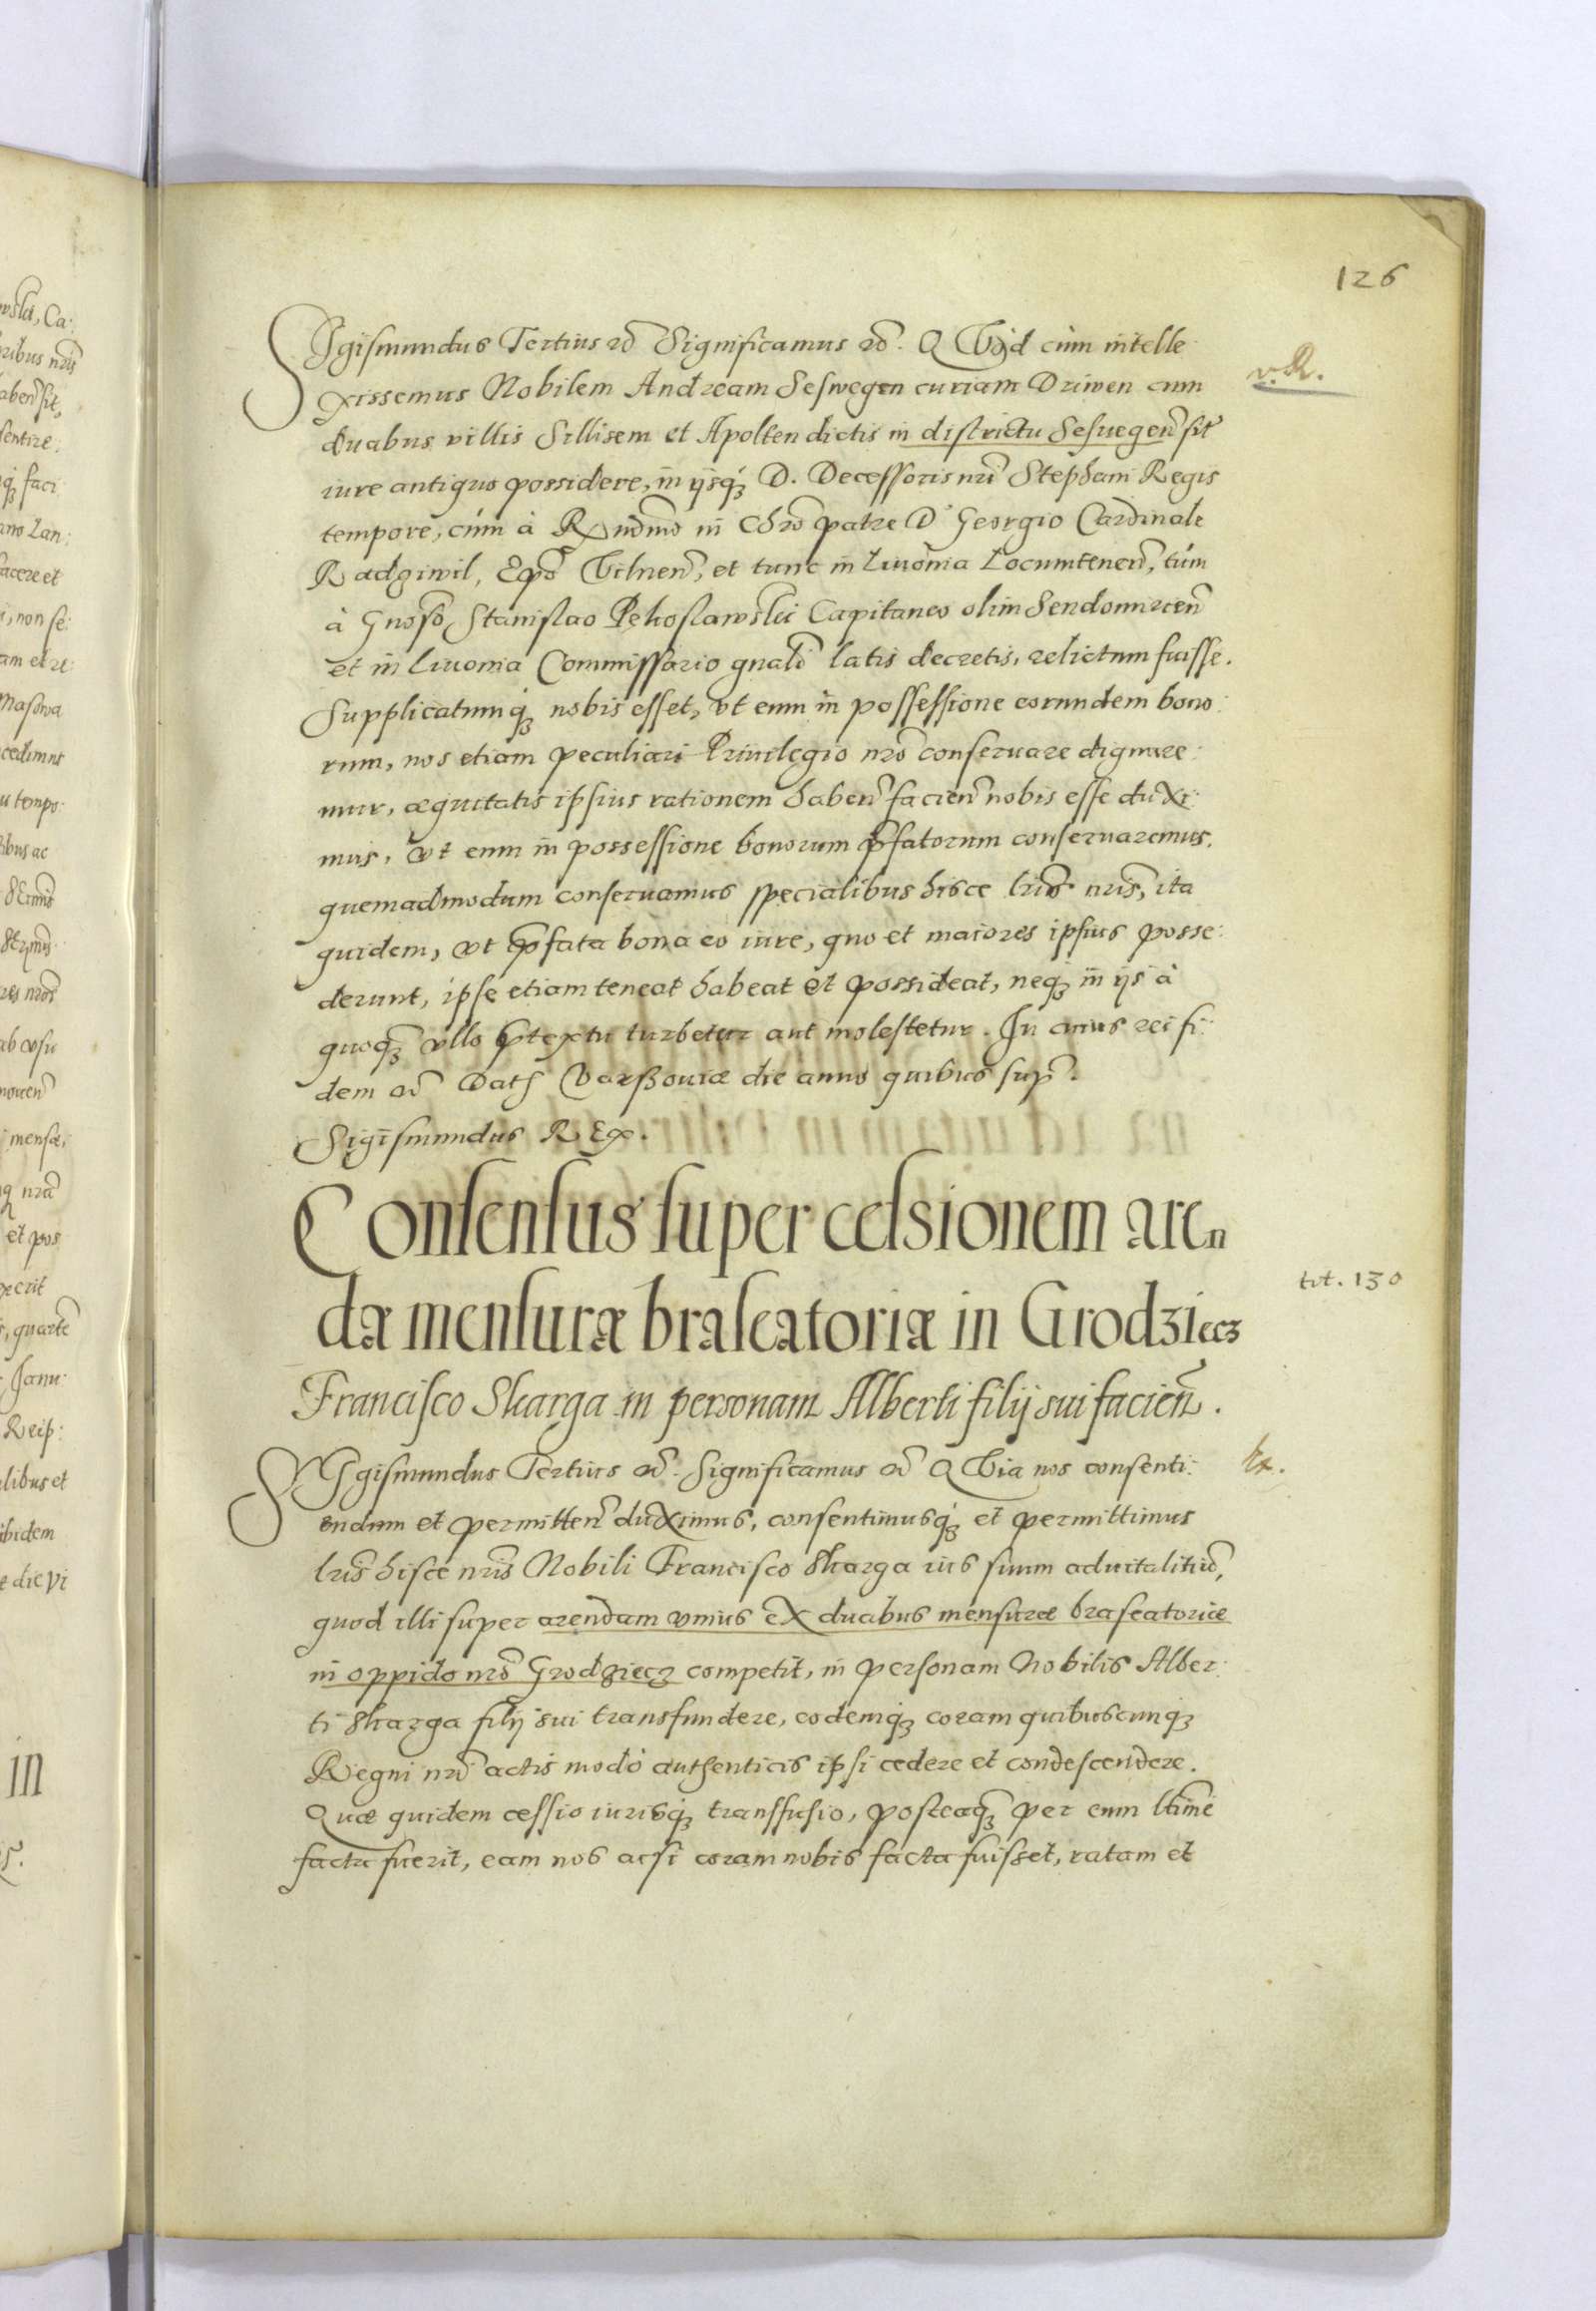 126
SIgismundus Tertius etc Significamus etc. QVòd cùm intelle:
v. R.
xissemus Nobilem Andream Seswegen curiam Driwen cum
duabus villis Sillisem et Apolten dictis in districtu Sesuegeñ sit
iure antiquo possidere, in ijsq́ʒ D. Decessoris nr̃i Stephani Regis
tempore, cúm à Rx̃ndmo in Chr̃o patre D. Georgio Cardinale
Radziwil, Ep̃o Vilneñ, et tunc in Liuonia Locumteneñ, túm
à Gnõso Stanislao Pękoslawski Capitaneo olim Sendomirieñ
et in Liuonia Commissario gnãli latis decretis, relictum fuisse.
Supplicatumq́ʒ nobis esset, vt eum in possessione eorundem bono:
rum, nos etiam peculiari Priuilegio nrõ conseruare dignare:
mur, æquitatis ipsius rationem habeñ facieñ nobis esse duxi:
mus, vt eum in possessione bonorum p̃fatorum conseruaremus,
quemadmodum conseruamus specialibus hisce lris̃ nris̃, ita
quidem, vt p̃fata bona eo iure, quo et maiores ipsius posse:
derunt, ipse etiam teneat habeat et possideat, neqʒ in ijs à
quoqʒ̃ vllo p̃textu turbetur aut molestetur. In cuius rei fi:
dem etc Dat Varßouiæ die anno quibus sup̃.
Sigismundus REx.
Consensus super cessionem aren
dæ mensuræ braseatoriæ in Grodziecz
tit. 130
Francisco Skarga in personam Alberti filij sui facieñ.
SIgismundus Tertius etc. Significamus etc QVia nos consenti:
Ex.
endum et permitteñ duximus, consentimusq́ʒ et permittimus
lris̃ hisce nris̃ Nobili Francisco Skarga ius suum aduitalitiũ,
quod illi super arendam vnius ex duabus mensuræ braseatoriæ
in oppido nrõ Grodziecz competit, in personam Nobilis Alber:
ti Skarga filij sui transfundere, eodemq́ʒ coram quibuscunq́ʒ
Regni nri̇̃ actis modò authenticis ipsi cedere et condescendere.
Quæ quidem cessio iurisq́ʒ transfusio, posteaqʒ̃ per eum ltimẽ
facta fuerit, eam nos acsi coram nobis facta fuisset, ratam et